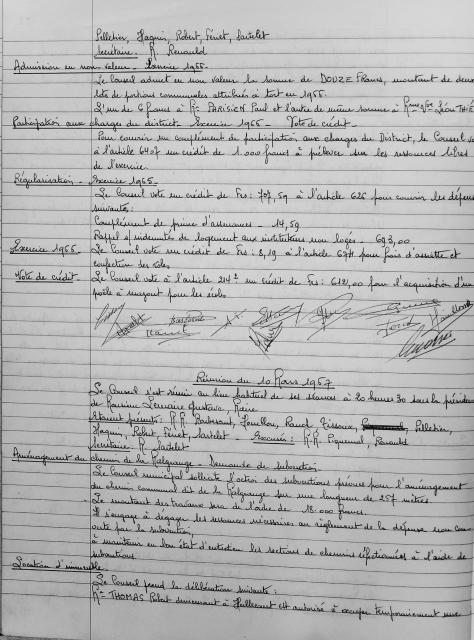 Pelletier, Haguin, Robert, Fénet, Sartelet
Secrétaire : R. Renauld
Admission en non valeur - Exercice 1966
Le Conseil admet en non valeur la somme de DOUZE Francs, montant de deux
lots de portions communales attribués à tort en 1966.
L'un de 6 francs à Mr PARISIEN Paul et l'autre de même somme à Léon THIÉ
Participation aux charges du district - Exercice 1966 - Vote de crédit -
Pour couvrir un complément de participation aux charges du District, le Conseil vo
à l'article 6407 un crédit de 1.000 francs à prélever sur les ressources libres
de l'exercice.
Régularisation - Exercice 1966 -
Le Conseil vote un crédit de Frs : 707,59 à l'article 626 pour couvrir les dépens
suivantes :
Complément de prime d'assurances - 14,59
Rappel d'indemnités de logement aux instituteurs non logés - 693,00
Exercice 1966 - Le Conseil vote un crédit de Frs : 8,19 à l'article 674 pour frais d'assiette et
confection des rôles
Vote de crédit - Le Conseil vote à l'article 214 un crédit de Frs : 612,00 pour l'acquisition d'un
poêle à mazout pour les écoles
Réunion du 10 Mars 1967
Le Conseil s'est réuni au lieu habituel de ses séances à 20 heures 30 sous la présiden
de Monsieur Lemaire Gustave, Maire
Etaient présents : M.M. Pelletier,
Haguin, Robert, Fénet, Sartelet - Excusés : M.M. Piquemal, Renauld
Secrétaire : Sartelet
Aménagement du chemin de la - Demande de subvention
Le Conseil municipal sollicite l'octroi des subventions prévues pour l'aménagement
du chemin communal dit de la sur une longueur de 257 mètres.
Le montant des travaux sera de l'ordre de 18.000 francs.
Il s'engage à dégager les ressources nécessaires au règlement de la dépense non couv
erte par la subvention,
à maintenir en bon état d'entretien les sections de chemins à l'aide de
subventions.
Location d'immeuble
Le Conseil prend la délibération suivante :
Mr THOMAS Robert demeurant à est autorisé à occuper temporairement une